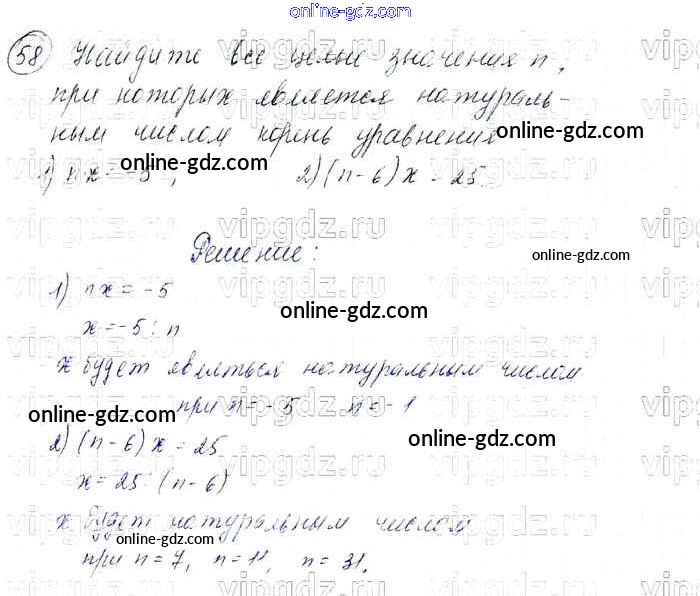 online-gdz.com
58 Найдите все целые значения n,
при которых является натураль-
ным числом корень уравнения
online-gdz.com
online-gdz.com
1) nx = -5, 2) (n-6)x = 25.
Решение:
online-gdz.com
1) nx = -5
online-gdz.com
x = -5 : n
x будет являться натуральным числом
при n = -5 n = -1
online-gdz.com
2) (n-6)x = 25
online-gdz.com
x = 25 : (n-6)
x будет натуральным числом
online-gdz.com
при n = 7, n = 11, n = 31.
vipgdz.ru